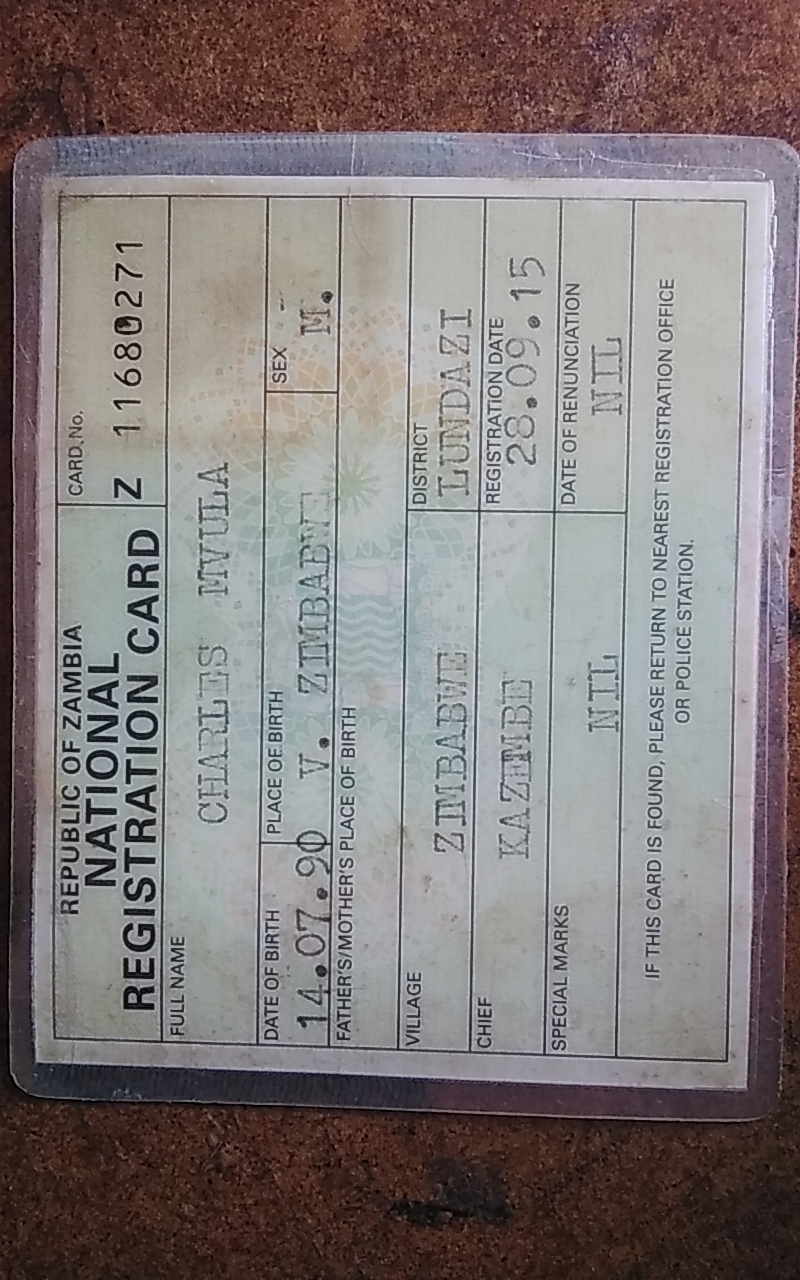 REPUBLIC OF ZAMBIA
NATIONAL
REGISTRATION CARD
CARD No.
Z 11680271
FULL NAME
CHARLES MVULA
DATE OF BIRTH
14.07.90
PLACE OF BIRTH
V. ZIMBABWE
SEX
M.
FATHER'S/MOTHER'S PLACE OF BIRTH
VILLAGE
ZIMBABWE
DISTRICT
LUNDAZI
CHIEF
KAZEMBE
REGISTRATION DATE
28.09.15
SPECIAL MARKS
NIL
DATE OF RENUNCIATION
NIL
IF THIS CARD IS FOUND, PLEASE RETURN TO NEAREST REGISTRATION OFFICE
OR POLICE STATION.